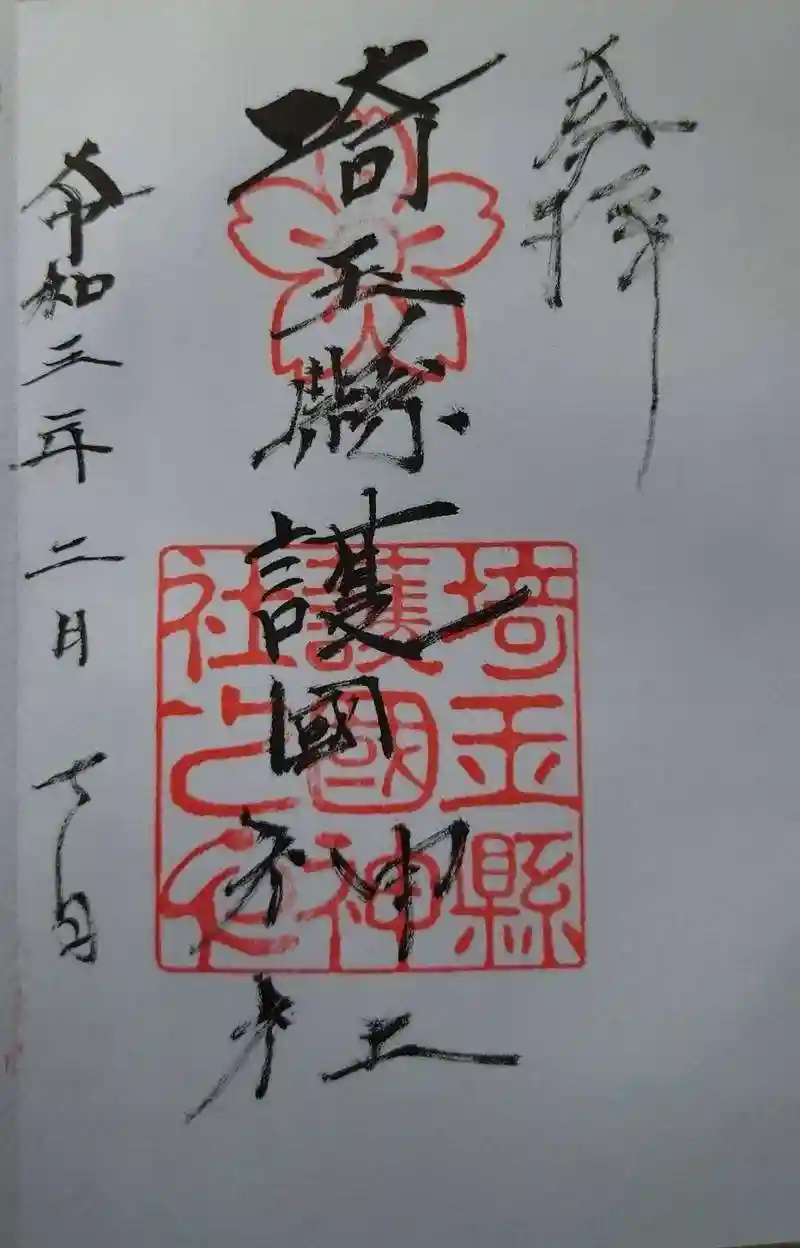 奉拝
埼玉縣護國神社
埼玉縣
護國神
社之印
令和三年二月 日